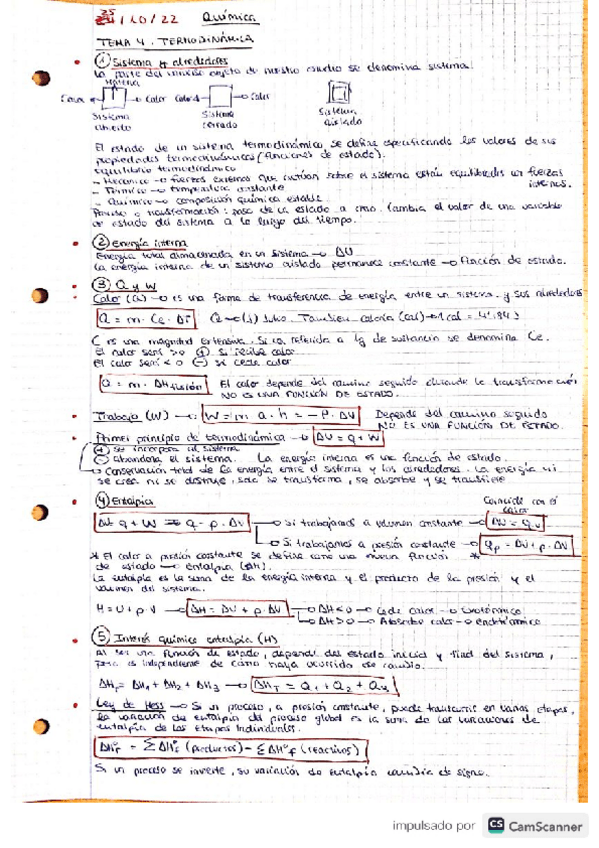 25/10/22 Química
TEMA 4. TERMODINÁMICA
① Sistema y alrededores
La parte del universo objeto de nuestro estudio se denomina sistema.
Materia
Calor Calor Calor Calor
Sistema abierto Sistema cerrado Sistema aislado
El estado de un sistema termodinámico se define especificando los valores de sus
propiedades termodinámicas (funciones de estado).
Equilibrio termodinámico
- Mecánico → fuerzas externas que actúan sobre el sistema están equilibradas con fuerzas
internas.
- Térmico → temperatura constante
- Químico → composición química estable
Proceso o transformación: pasa de un estado a otro. Cambia el valor de una variable
de estado del sistema a lo largo del tiempo.
② Energía interna
Energía total almacenada en un sistema → ΔU
La energía interna de un sistema aislado permanece constante → Función de estado.
③ Q y W
Calor (Q) → es una forma de transferencia de energía entre un sistema y sus alrededores
Q = m · Ce · ΔT Q → (J) Julio. También caloría (cal) → 1 cal = 4'184 J
C es una magnitud extensiva. Si va referida a 1g de sustancia se denomina Ce.
El calor será > 0 (+) si recibe calor
El calor será < 0 (-) si cede calor
Q = m · ΔHfusión El calor depende del camino seguido durante la transformación
NO ES UNA FUNCIÓN DE ESTADO.
Trabajo (W) → W = m · a · h = - P · ΔV Depende del camino seguido
NO ES UNA FUNCIÓN DE ESTADO.
Primer principio de termodinámica → ΔU = q + W
(+) se incorpora al sistema
(-) abandona el sistema. La energía interna es una función de estado.
→ Conservación total de la energía entre el sistema y los alrededores. La energía ni
se crea ni se destruye, solo se transforma, se absorbe y se transfiere
④ Entalpía
Coincide con el calor
ΔU = q + W ⇒ q - p · ΔV → Si trabajamos a volumen constante → ΔU = qv
→ Si trabajamos a presión constante → Qp = ΔU + p · ΔV *
* El calor a presión constante se define como una nueva función
de estado → entalpía (ΔH).
La entalpía es la suma de la energía interna y el producto de la presión y el
volumen del sistema.
H = U + p · V → ΔH = ΔU + p · ΔV → ΔH < 0 → Cede calor → Exotérmico
→ ΔH > 0 → Absorbe calor → endotérmico
⑤ Interés químico entalpía (H)
Al ser una función de estado, depende del estado inicial y final del sistema,
pero es independiente de cómo haya ocurrido ese cambio.
ΔHT = ΔH1 + ΔH2 + ΔH3 → ΔHT = Q1 + Q2 + Q4
Ley de Hess → Si un proceso, a presión constante, puede transcurrir en varias etapas,
la variación de entalpía del proceso global es la suma de las variaciones de
entalpía de las etapas individuales.
ΔH°r = ΣΔH°f (productos) - ΣΔH°f (reactivos)
Si un proceso se invierte, su variación de entalpía cambia de signo.
impulsado por CS CamScanner